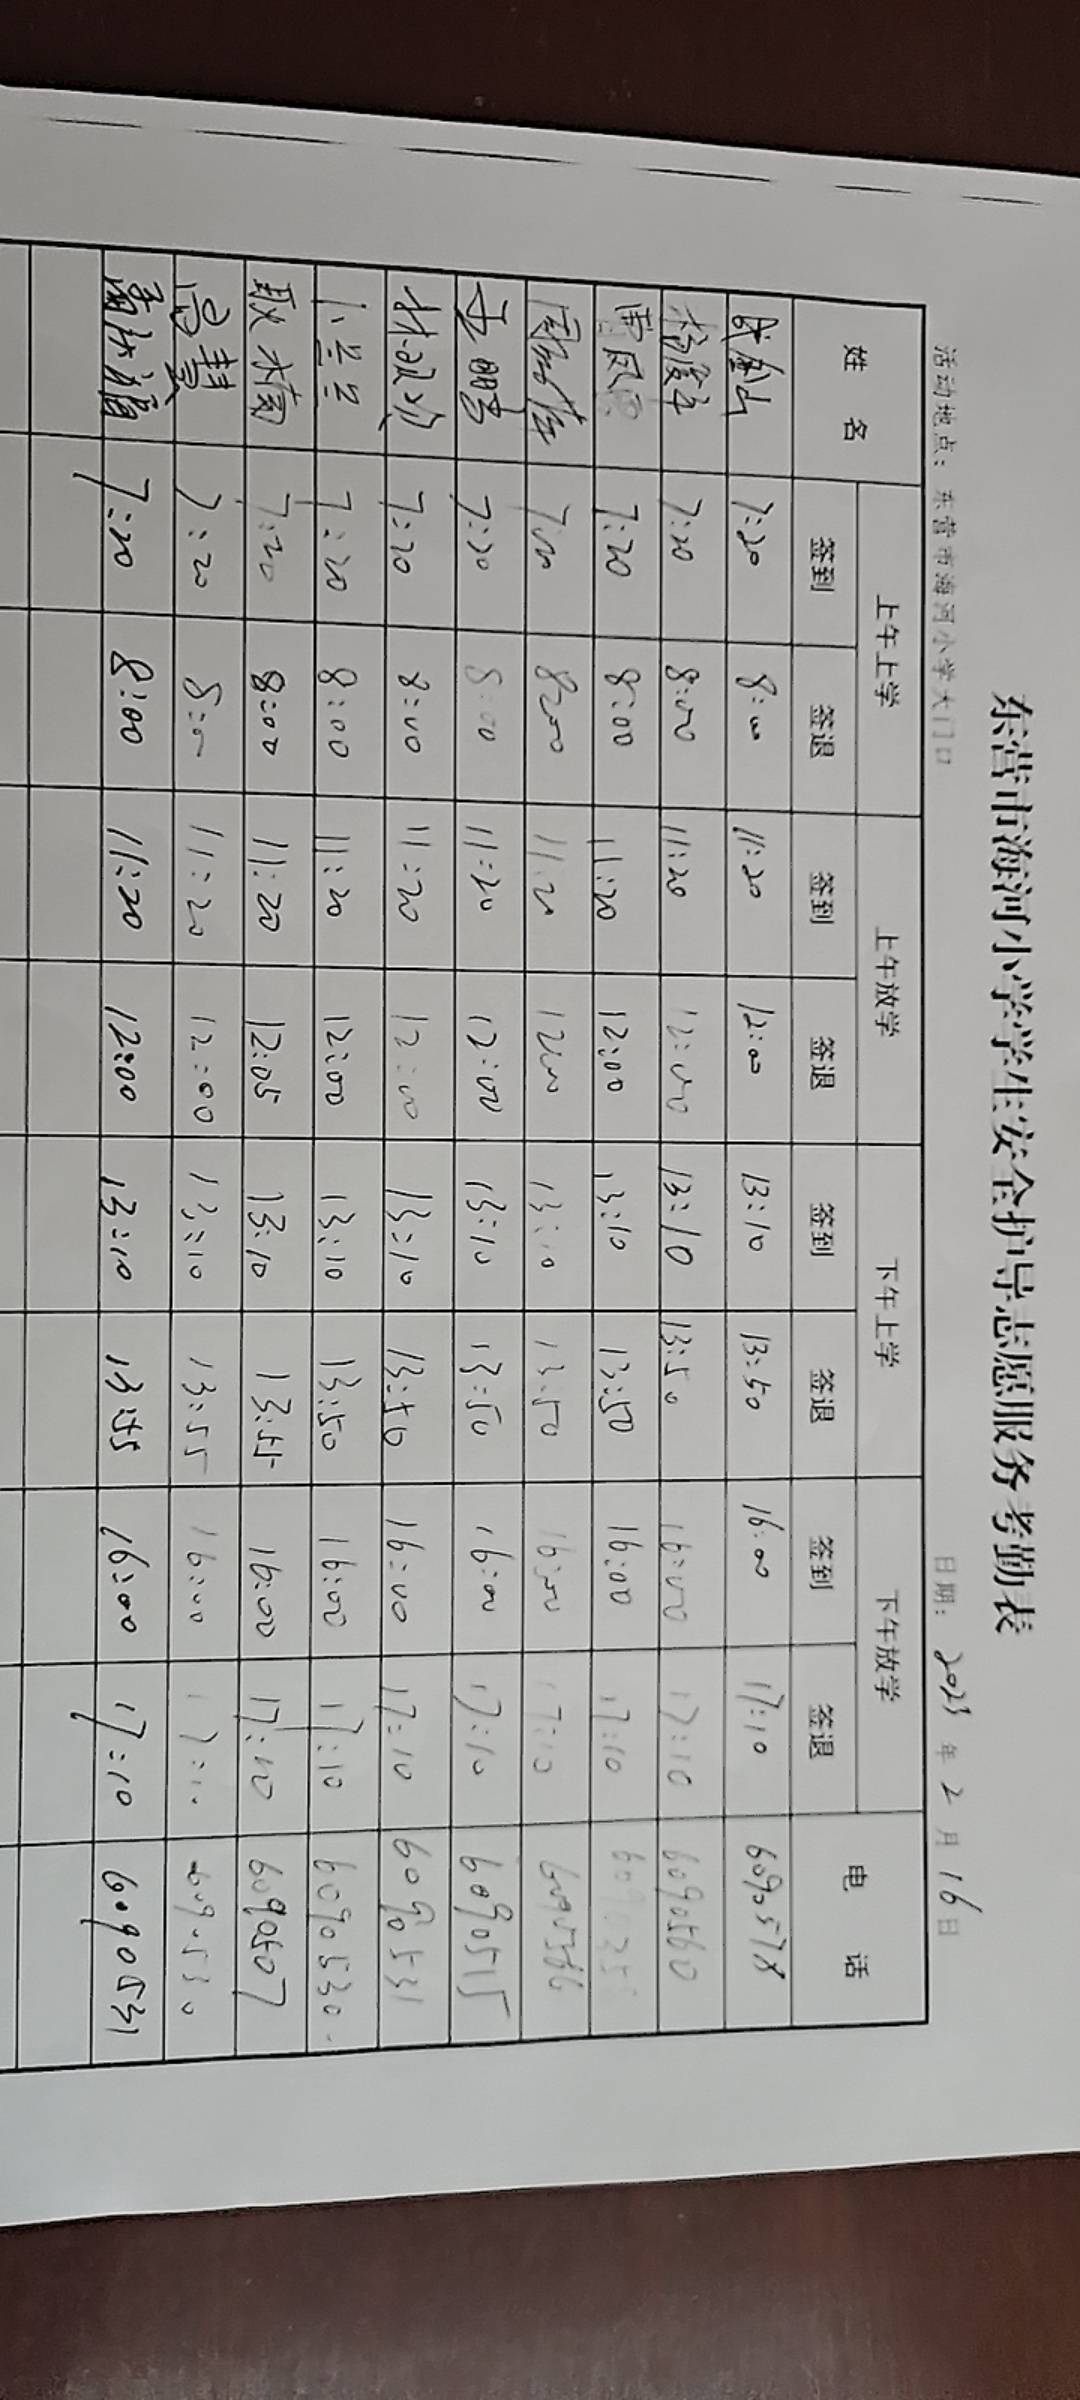 东营市海河小学学生安全护导志愿服务考勤表
活动地点：东营市海河小学大门口 日期：2023年2月16日
姓名 上午上学 上午放学 下午上学 下午放学 电话
签到 签退 签到 签退 签到 签退 签到 签退
7:20 8:00 11:20 12:00 13:10 13:50 16:00 17:10 6090578
7:20 8:00 11:20 12:00 13:10 13:50 16:00 17:10 6090560
7:20 8:00 11:20 12:00 13:10 13:50 16:00 17:10
7:20 8:00 11:20 12:00 13:10 13:50 16:00 17:10 6090566
王鹏 7:20 8:00 11:20 12:00 13:10 13:50 16:00 17:10 6090515
7:20 8:00 11:20 12:00 13:10 13:50 16:00 17:10 6090531
卜兰兰 7:20 8:00 11:20 12:00 13:10 13:50 16:00 17:10 6090530
耿楠 7:20 8:00 11:20 12:05 13:10 13:55 16:00 17:10 6090507
冯慧 7:20 8:00 11:20 12:00 13:10 13:55 16:00 17:10 6090530
7:20 8:00 11:20 12:00 13:10 13:55 16:00 17:10 6090531